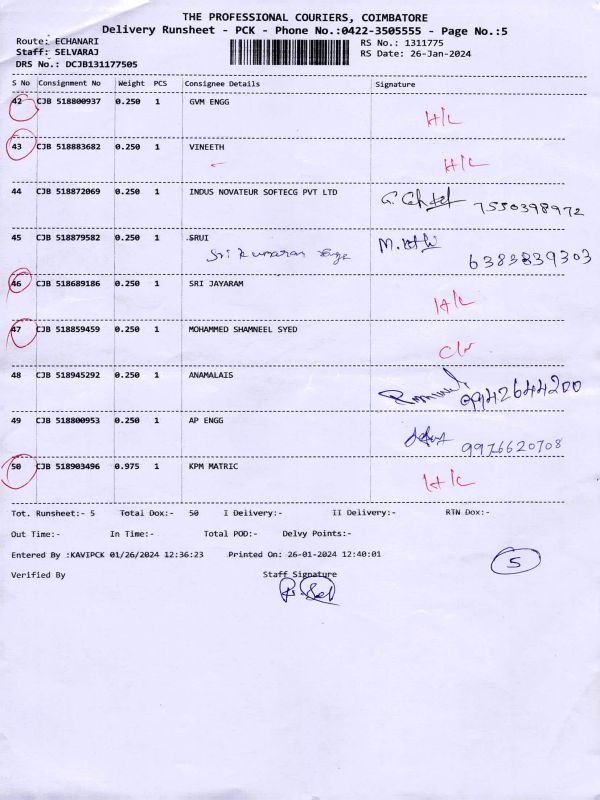 THE PROFESSIONAL COURIERS, COIMBATORE
Delivery Runsheet - PCK - Phone No.:0422-3505555 - Page No.:5
Route: ECHANARI RS No.: 1311775
Staff: SELVARAJ RS Date: 26-Jan-2024
DRS No.: DCJB131177505
S No Consignment No Weight PCS Consignee Details Signature
42 CJB 518800937 0.250 1 GVM ENGG
H/C
43 CJB 518883682 0.250 1 VINEETH
H/C
44 CJB 518872069 0.250 1 INDUS NOVATEUR SOFTECG PVT LTD
7550398972
45 CJB 518879582 0.250 1 SRUI
Sri kumaran
6383839303
46 CJB 518689186 0.250 1 SRI JAYARAM
H/C
47 CJB 518859459 0.250 1 MOHAMMED SHAMNEEL SYED
48 CJB 518945292 0.250 1 ANAMALAIS
9942644200
49 CJB 518800953 0.250 1 AP ENGG
9976620708
50 CJB 518903496 0.975 1 KPM MATRIC
H/C
Tot. Runsheet:- 5 Total Dox:- 50 I Delivery:- II Delivery:- RTN Dox:-
Out Time:- In Time:- Total POD:- Delvy Points:-
Entered By :KAVIPCK 01/26/2024 12:36:23 Printed On: 26-01-2024 12:40:01
5
Verified By Staff Signature